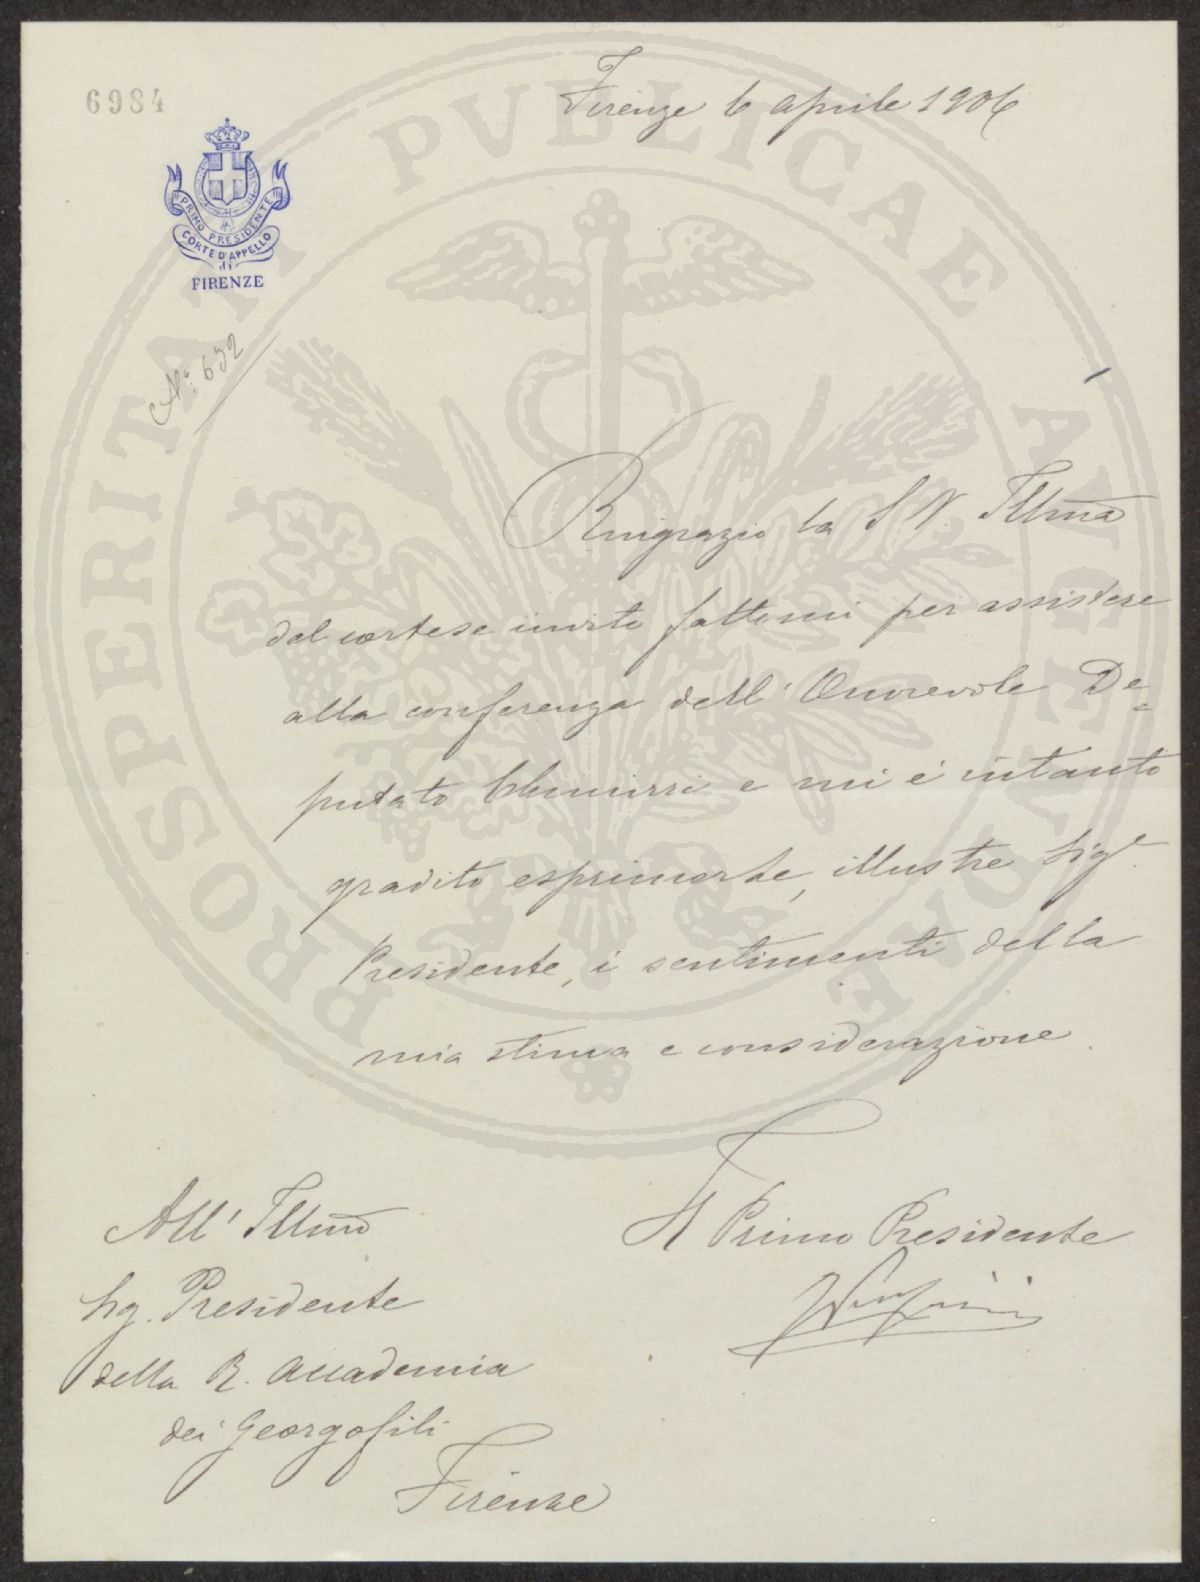 6984
Firenze 6 aprile 1906
PRIMO PRESIDENTE
CORTE D'APPELLO
di
FIRENZE
N.° 692
PROSPERITATI PVBLICAE AVGENDAE
Ringrazio la S. V. Illma
del cortese invito fattomi per assistere
alla conferenza dell'Onorevole De=
putato Chimirri e mi è intanto
gradito esprimerle, illustre Sigr
Presidente, i sentimenti della
mia stima e considerazione.
Il Primo Presidente
All'Illmo
Sig. Presidente
della R. Accademia
dei Georgofili
Firenze